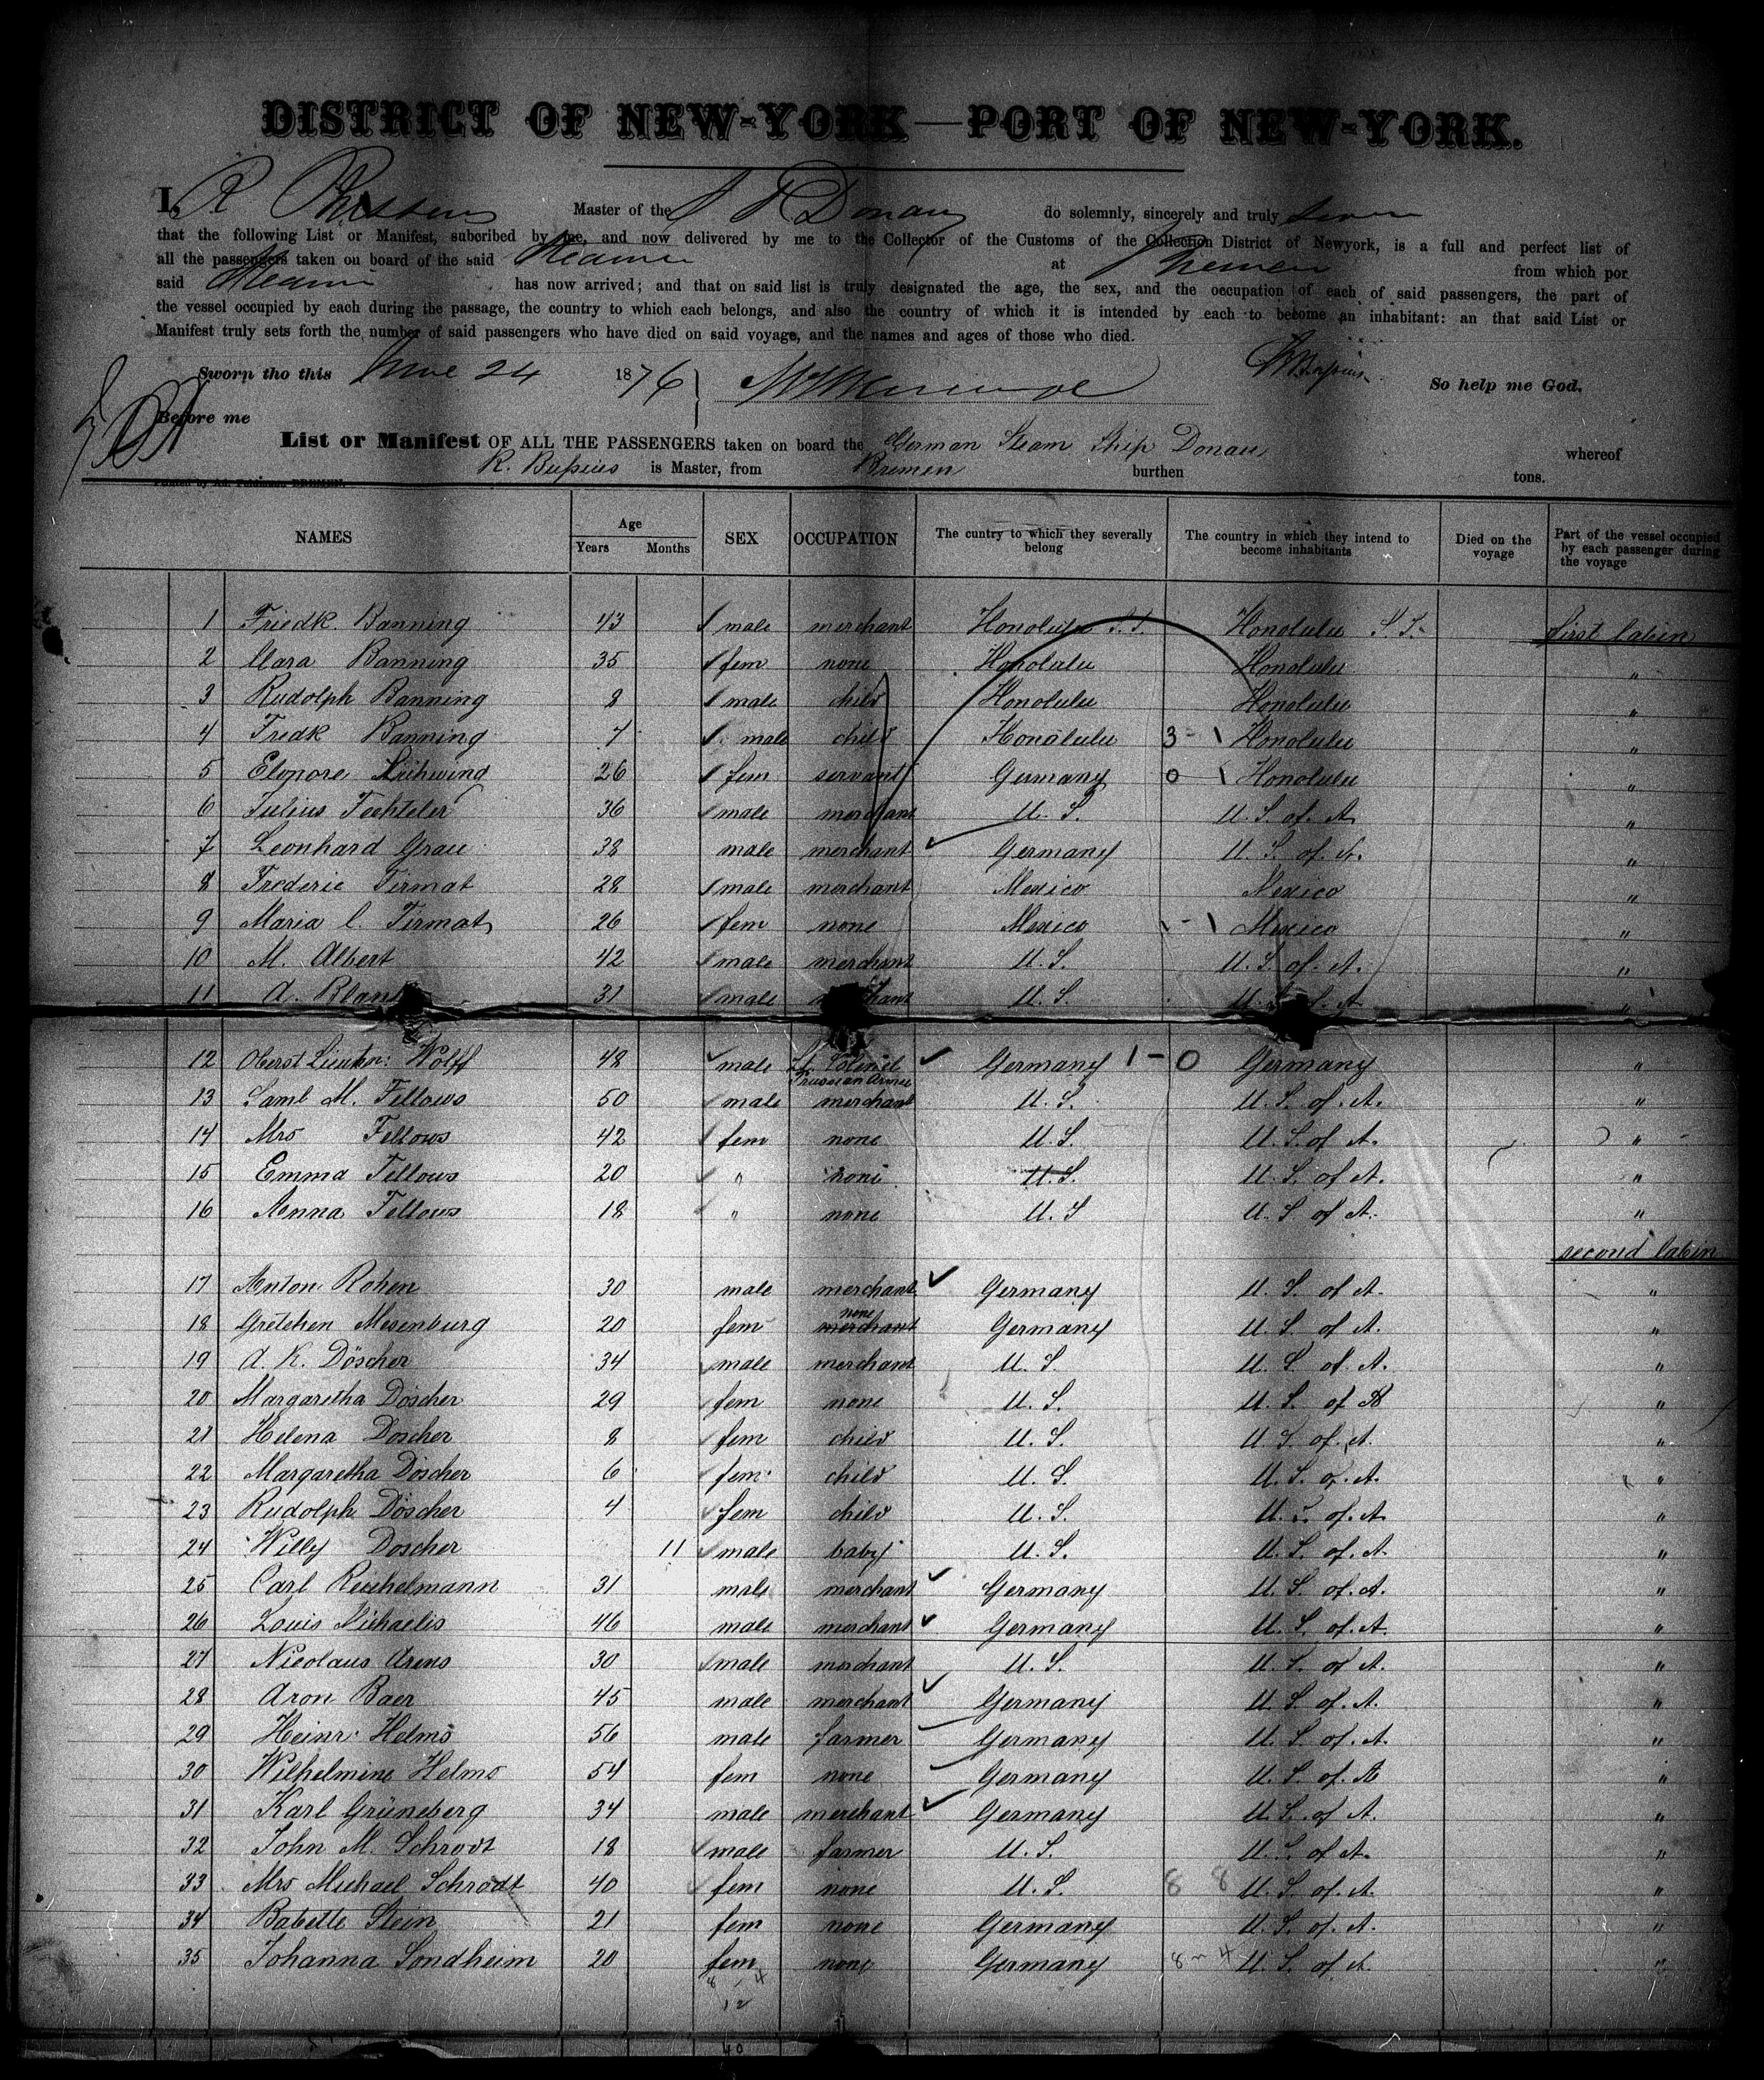 DISTRICT OF NEW-YORK—PORT OF NEW-YORK.
I, R Bussius Master of the S S Donau do solemnly, sincerely and truly swear
that the following List or Manifest, subcribed by me, and now delivered by me to the Collector of the Customs of the Collection District of Newyork, is a full and perfect list of
all the passengers taken on board of the said Steamer at Bremen from which por
said Steamer has now arrived; and that on said list is truly designated the age, the sex, and the occupation of each of said passengers, the part of
the vessel occupied by each during the passage, the country to which each belongs, and also the country of which it is intended by each to become an inhabitant: an that said List or
Manifest truly sets forth the number of said passengers who have died on said voyage, and the names and ages of those who died.
Sworn tho this June 24 1876 So help me God.
Before me
List or Manifest OF ALL THE PASSENGERS taken on board the German Steam Ship Donau whereof
R. Bussius is Master, from Bremen burthen tons.
Printed by Ad. Feldmann BREMEN.
NAMES Age Years Months SEX OCCUPATION The cuntry to which they severally belong The country in which they intend to become inhabitants Died on the voyage Part of the vessel occupied by each passenger during the voyage
1 Friedk. Banning 43 male merchant Honolulu S.I. Honolulu S.I. first Cabin
2 Clara Banning 35 fem none Honolulu Honolulu "
3 Rudolph Banning 8 male child Honolulu Honolulu "
4 Fredk Banning 7 male child Honolulu 3 - 1 Honolulu "
5 Elonore 26 fem servant Germany 0 - 1 Honolulu "
6 Julius Fechteler 36 male merchant U. S. U. S. of. A. "
7 Leonhard Grau 38 male merchant Germany U. S. of. A. "
8 Frederic Tirmat 28 male merchant Mexico Mexico "
9 Maria C. Tirmat 26 fem none Mexico 1 - 1 Mexico "
10 M. Albert 42 male merchant U. S. U. S. of. A. "
11 A. 31 male merchant U. S. U. S. of. A "
12 Oberst Lieutn: Wolff 48 male Lt. Colonel Prussian Armee Germany 1 - 0 Germany "
13 Saml M. Fellows 50 male merchant U. S. U. S. of. A. "
14 Mrs Fellows 42 fem none U. S. U. S. of A. "
15 Emma Fellows 20 " none U. S. U. S. of A. "
16 Anna Fellows 18 " none U. S U. S of A. "
second Cabin
17 Anton Rohen 30 male merchant Germany U. S. of A. "
18 Gretchen Mesenburg 20 fem none merchant Germany U. S. of A. "
19 A. K. Döscher 34 male merchant U. S. U. S. of. A. "
20 Margaretha Döscher 29 fem none U. S. U. S. of A "
21 Helena Doscher 8 fem child U. S. U. S. of. A. "
22 Margaretha Döscher 6 fem child U. S. U. S. of. A. "
23 Rudolph Döscher 4 fem child U. S. U. S. of. A. "
24 Willy Doscher 11 male baby U. S. U. S. of. A. "
25 Carl Reichelmann 31 male merchant Germany U. S. of. A. "
26 Louis Michaelis 46 male merchant Germany U. S. of. A. "
27 Nicolaus Arens 30 male merchant U. S. U. S. of A. "
28 Aron Baer 45 male merchant Germany U. S. of. A. "
29 Heinr. Helms 56 male farmer Germany U. S. of. A. "
30 Wilhelmine Helms 54 fem none Germany U. S. of. A "
31 Karl Grüneberg 34 male merchant Germany U. S. of A. "
32 John M. Schrodt 18 male farmer U. S. U. S. of A. "
33 Mrs Michael Schrodt 40 fem none U. S. 8 8 U. S. of. A. "
34 Babette Stein 21 fem none Germany U. S. of. A. "
35 Johanna Sondheim 20 fem none Germany 8 - 4 U. S. of A. "
8 - 4
12
40